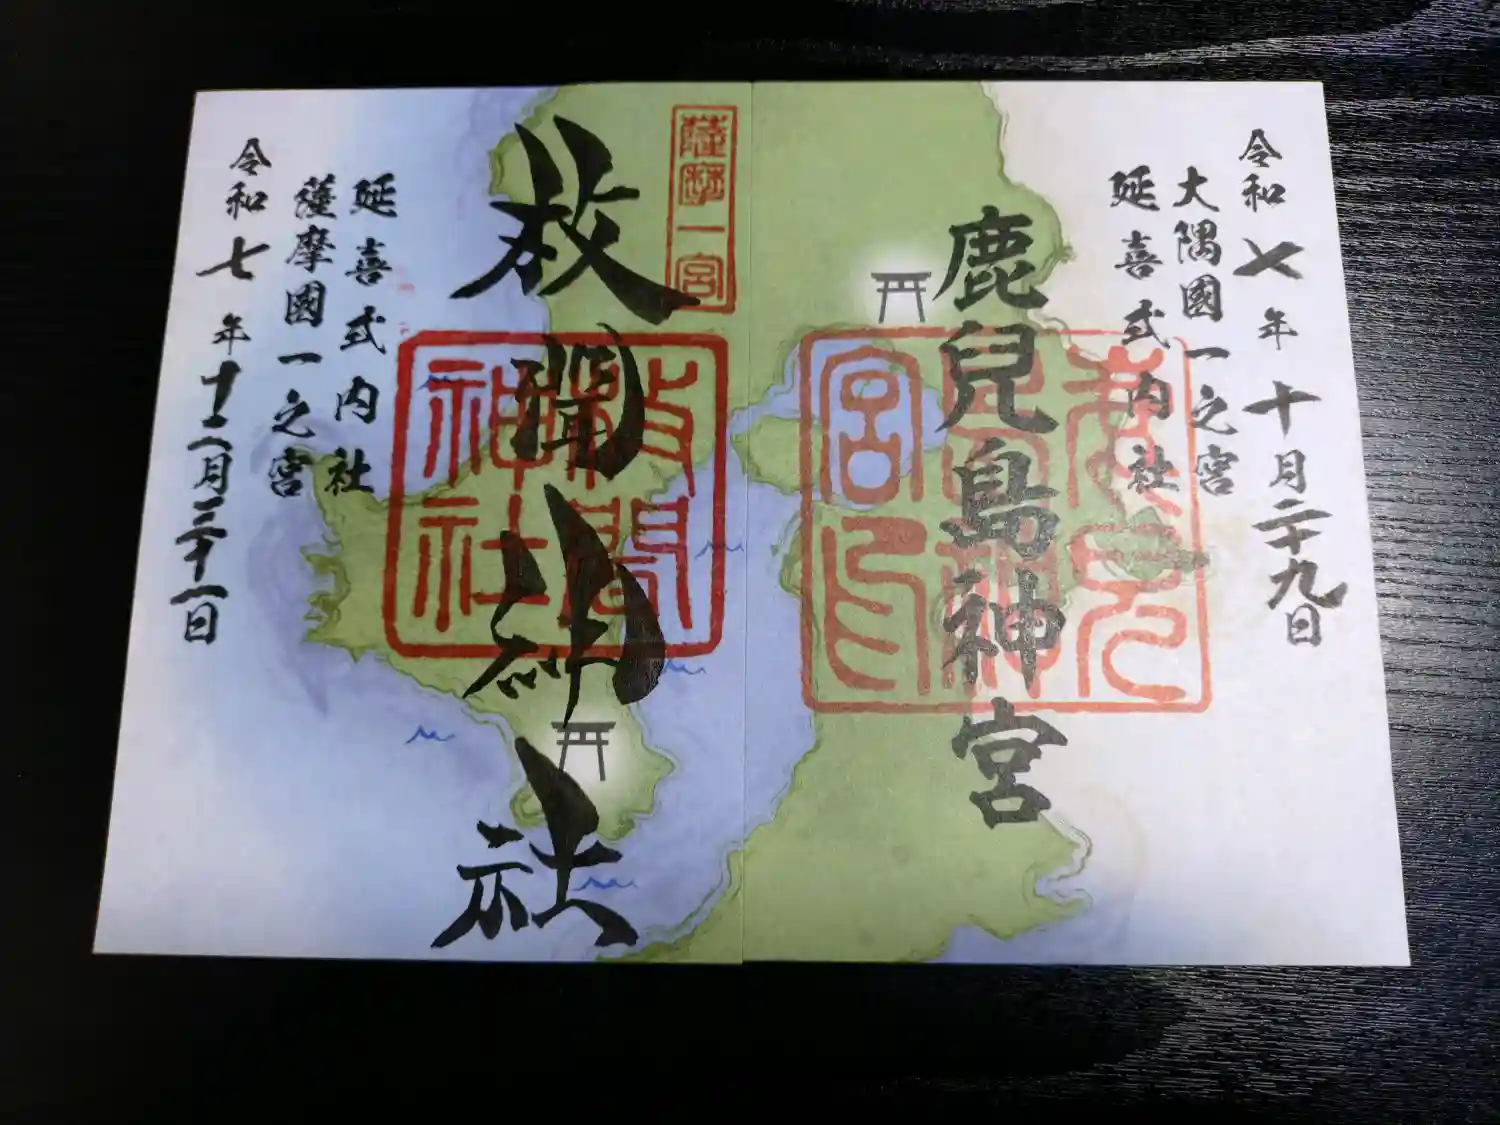 令和七年十月二十九日
大隅國一之宮
延喜式内社
鹿兒島神宮
鹿兒島神宮印
薩摩一宮
枚聞神社
枚聞神社
延喜式内社
薩摩國一之宮
令和七年十二月三十一日